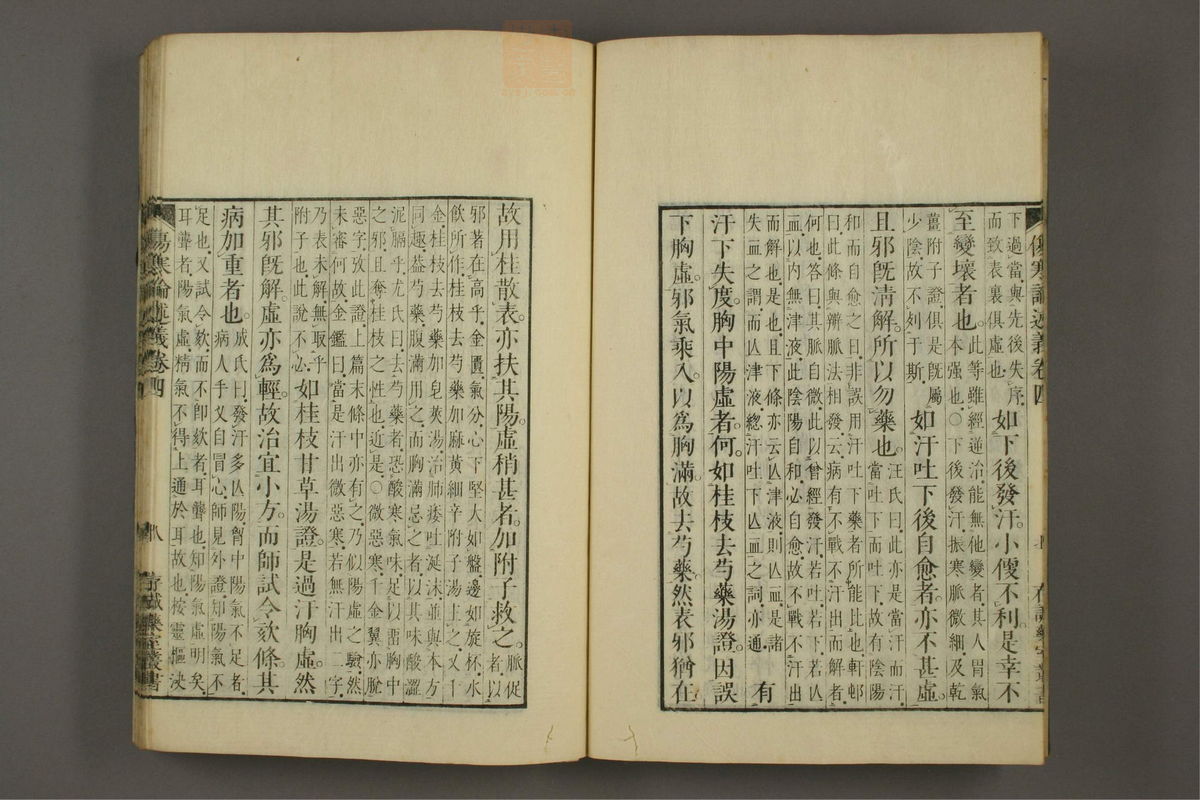 傷寒論述義卷四 七 存誠藥室叢書
下過當與先後失序
而致表裏俱虛也
如下後發汗小便不利是幸不
至變壞者也
此等雖經逆治能無他變者其人胃氣
本强也〇下後發汗振寒脈微細及乾
薑附子證俱是既屬
少陰故不列于斯
如汗吐下後自愈者亦不甚虛
且邪既清解所以勿藥也
汪氏曰此亦是當汗而汗
當吐下而吐下故有陰陽
和而自愈之日非誤用汗吐下藥者所能比也軒邨
曰此條與辨脈法相發云病有不戰不汗出而解者
何也答曰其脈自微此以曾經發汗若吐若下若亾
血以內無津液此陰陽自和必自愈故不戰不汗出
而解也是且下條亦云亾津液則亾血是諸
失血之謂而亾津液總汗吐下亾血之詞亦通
有
汗下失度胸中陽虛者何如桂枝去芍藥湯證因誤
下胸虛邪氣乘入以爲胸滿故去芍藥然表邪猶在
故用桂散表亦扶其陽虛稍甚者加附子救之
脈促
者以
邪著在高乎金匱氣分心下堅大如盤邊如旋杯水
飲所作桂枝去芍藥加麻黃細辛附子湯主之又千
金桂枝去芍藥加皂莢湯治肺痿吐涎沫並與本方
同趣葢芍藥腹滿用之而胸滿忌之者以其味酸澀
泥膈乎尤氏曰去芍藥者恐酸寒氣味足以畱胸中
之邪且奪桂枝之性也近是〇微惡寒千金翼亦脫
惡字攷此證上篇末條中亦有之乃似陽虛之驗然
未審何故金鑑曰當是汗出微惡寒若無汗出二字
乃表未解無取乎
附子也此說不必
如桂枝甘草湯證是過汗胸虛然
其邪既解虛亦爲輕故治宜小方而師試令欬條其
病加重者也
成氏曰發汗多亾陽胷中陽氣不足者
病人手叉自冒心師見外證知陽氣不
足也又試令欬而不卽欬者耳聾也知陽氣虛明矣
耳聾者陽氣虛精氣不得上通於耳故也按靈樞決
傷寒論述義卷四 八 存誠藥室叢書